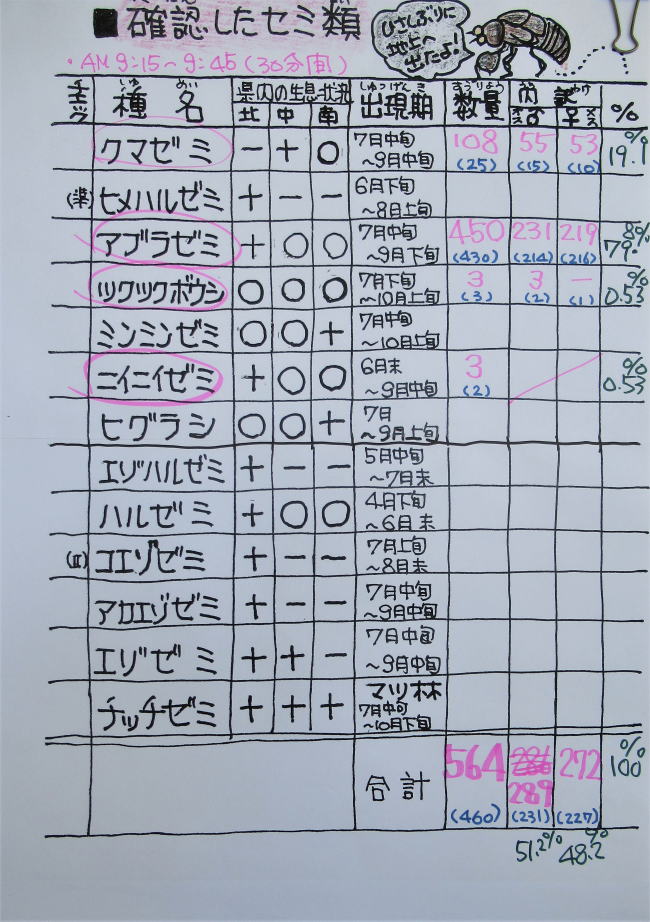 ■確認したセミ類
ひさしぶりに
地上へ
出たよ!
・AM 9:15～9:45 (30分間)
チェック 種名 県内の生息状況 出現期 数量 内訳 %
しゅ めい しゅつげんき すうりょう うちわけ
北 中 南 オス♂ メス♀
クマゼミ － ＋ ○ 7月中旬 108 55 53 %
～9月中旬 (25) (15) (10) 19.1
(準) ヒメハルゼミ ＋ － － 6月下旬
～8月上旬
アブラゼミ ＋ ○ ○ 7月中旬 450 231 219
～9月下旬 (430) (214) (216) 79.8%
ツクツクボウシ ○ ○ ○ 7月下旬 3 3 － %
～10月上旬 (3) (2) (1) 0.53
ミンミンゼミ ○ ○ ＋ 7月中旬
～10月上旬
ニイニイゼミ ＋ ○ ○ 6月末 3 %
～9月中旬 (2) 0.53
ヒグラシ ○ ○ ＋ 7月
～9月上旬
エゾハルゼミ ＋ － － 5月中旬
～7月末
ハルゼミ ＋ ○ ○ 4月下旬
～6月末
(Ⅱ) コエゾゼミ ＋ － － 7月上旬
～8月末
アカエゾゼミ ＋ － － 7月中旬
～9月中旬
エゾゼミ ＋ ＋ － 7月中旬
～9月中旬
チッチゼミ ＋ ＋ ＋ マツ林
7月中旬
～10月下旬
合計 564 289 272 %
(460) (231) (227) 100
51.2% 48.2%